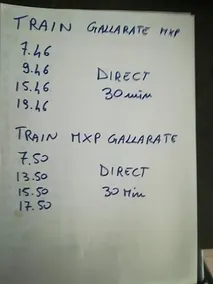 TRAIN GALLARATE MXP
7.46
9.46
15.46 DIRECT
19.46 30 min
TRAIN MXP GALLARATE
7.50
13.50 DIRECT
15.50 30 Min
17.50